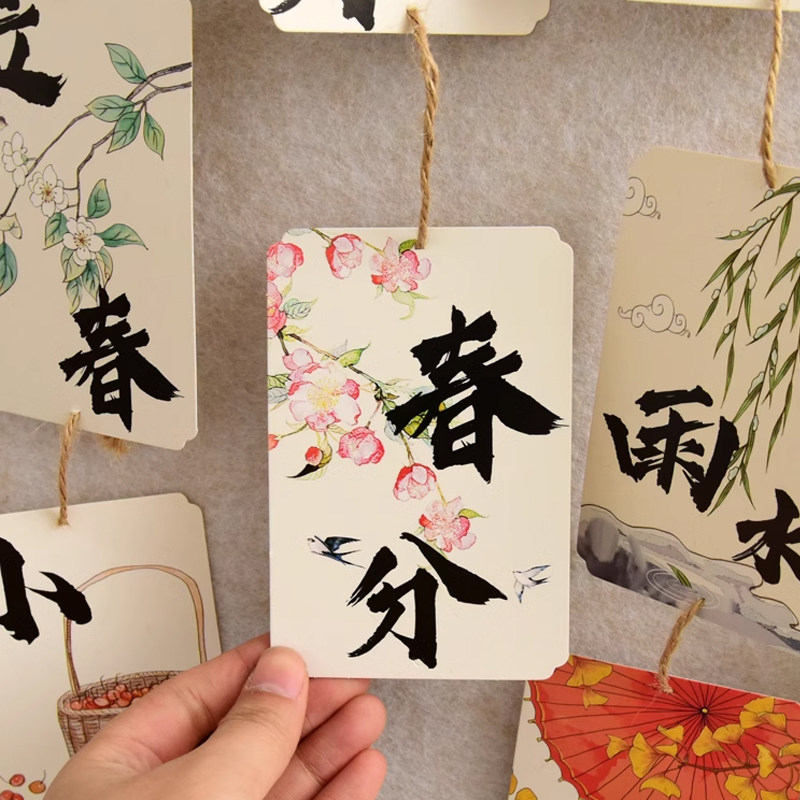 立
春
春
分
雨
水
小